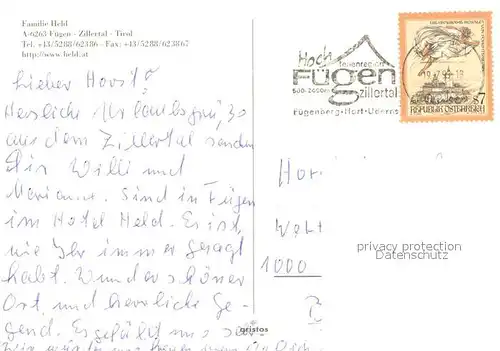 Familie Held
A-6263 Fügen - Zillertal - Tirol
Tel. +43/5288/62386 - Fax: +43/5288/623867
http://www.held.at
Lieber Horst!
Herzliche Urlaubsgrüße
aus dem Zillertal senden
Dir Willi und
Marianne. Sind in Fügen
im Hotel Held. Es ist,
wie Ihr immer gesagt
habt. Wunderschöner
Ort, und herrliche Ge-
gend. Es gefällt uns sehr
Hoch
ferienregion
Fügen
zillertal
Fügenberg-Hart-Uderns
REPUBLIK ÖSTERREICH
S7
1000
privacy protection
Datenschutz
qristos